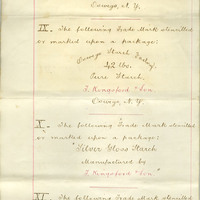 Oswego, N.Y.
IX. The following Trade Mark stencilled
or marked upon a package:
"Oswego Starch Factory.
42 lbs.
Pure Starch.
T. Kingsford & Son.
Oswego, N.Y.
X. The following Trade Mark stencilled
or marked upon a package:
"Silver Gloss Starch
Manufactured by
T. Kingsford & Son."
XI. The following Trade Mark stencilled